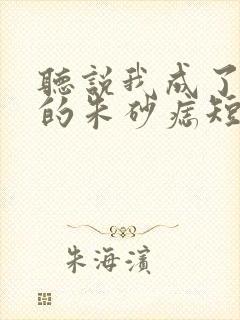 聽説我成了
的朱砂痣短
朱海濱